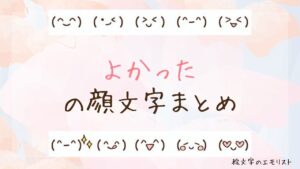 (^‿^) (•ᴗ<) (>ᴗ<) (^-^) (>ᴗ<)
よかった
の顔文字まとめ
(^-^)✨ (^ᴗ^) (^o^) (◡ᴗ◡) (♡ᴗ♡)
絵文字のエモリスト